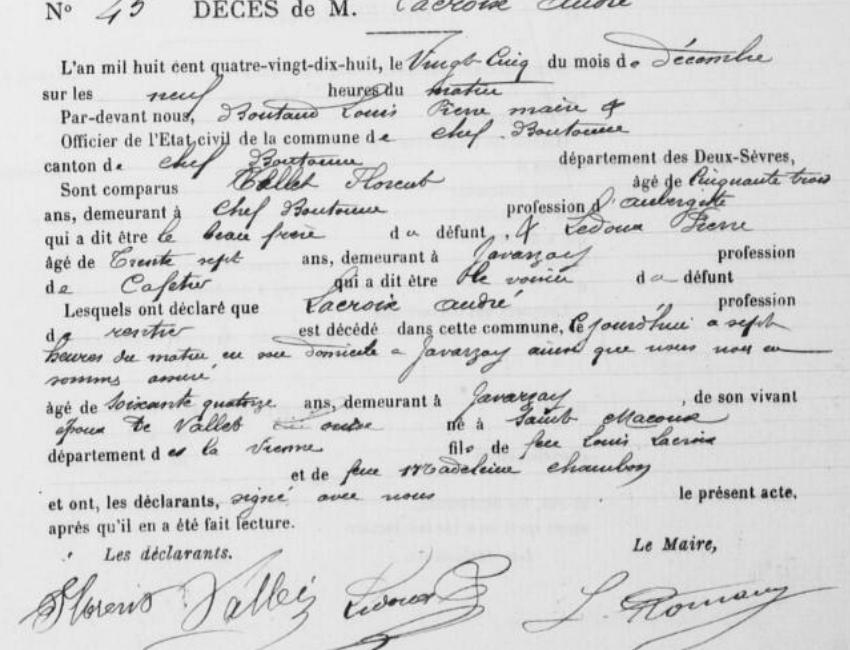 No 45 DÉCÈS de M. Lacroix André
L'an mil huit cent quatre-vingt-dix-huit, le Vingt-Cinq du mois de décembre
sur les neuf heures du matin
Par-devant nous, Louis Pierre maire &
Officier de l'Etat civil de la commune de Chef-Boutonne
canton de Chef Boutonne département des Deux-Sèvres,
Sont comparus Vallet Florent âgé de Cinquante trois
ans, demeurant à Chef Boutonne profession d'aubergiste
qui a dit être le beau frère du défunt, & Ledoux Pierre
âgé de Trente sept ans, demeurant à Javarzay profession
de Cafetier qui a dit être le voisin du défunt
Lesquels ont déclaré que Lacroix André profession
de rentier est décédé dans cette commune, ce jourd'hui a sept
heures du matin en son domicile a Javarzay ainsi que nous nous en
sommes assuré
âgé de soixante quatorze ans, demeurant à Javarzay, de son vivant
époux de Vallet né à Saint Macoux
département de la Vienne fils de feu Louis Lacroix
et de feue Madeleine Chambon
et ont, les déclarants, signé avec nous le présent acte.
après qu'il en a été fait lecture.
Les déclarants. Le Maire,
Florent Vallet Ledoux P